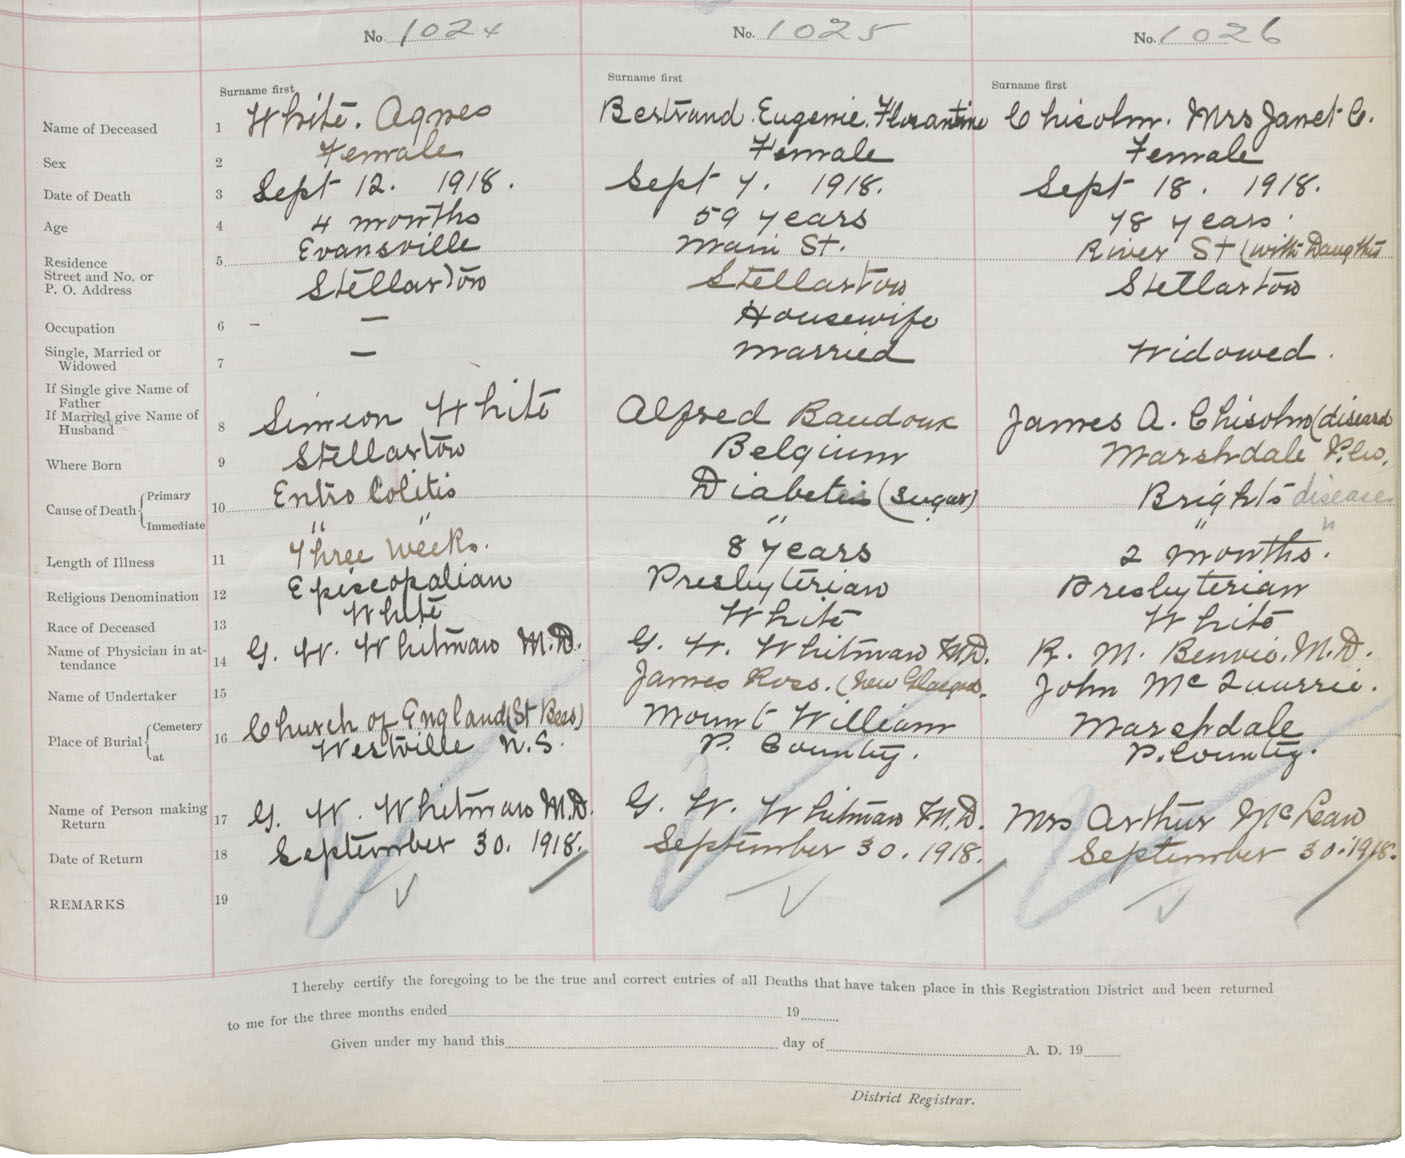 No. 1024 No. 1025 No. 1026
Surname first Surname first Surname first
Name of Deceased 1 White. Agnes Bertrand. Eugenie. Florantine Chisolm. Mrs Janet C.
Sex 2 Female Female Female
Date of Death 3 Sept 12. 1918. Sept 7. 1918. Sept 18. 1918.
Age 4 4 months 59 years 78 years
Residence 5 Evansville Main St. River St (with Daughter
Street and No. or
P. O. Address Stellarton Stellarton Stellarton
Occupation 6 - — Housewife
Single, Married or
Widowed 7 — Married Widowed.
If Single give Name of
Father
If Married give Name of
Husband 8 Simeon White Alfred Baudoux James A. Chisolm (diseard
Where Born 9 Stellarton Belgium Marshdale P.Co.
Cause of Death { Primary 10 Entro Colitis Diabetis (Sugar) Brights disease
Immediate " " " " "
Length of Illness 11 Three weeks. 8 years 2 months.
Religious Denomination 12 Episcopalian Presbyterian Presbyterian
Race of Deceased 13 White White White
Name of Physician in at-
tendance 14 G. W. Whitman M.D. G. W. Whitman M.D. R. M. Benvie. M.D.
Name of Undertaker 15 James Ross. (New Glasgow. John McQuarrie.
Place of Burial { Cemetery 16 Church of England (St Bees) Mount William Marshdale
at Westville N.S. P. County. P. County.
Name of Person making
Return 17 G. W. Whitman M.D. G. W. Whitman M.D. Mrs Arthur McLean
Date of Return 18 September 30. 1918. September 30. 1918. September 30. 1918.
REMARKS 19
I hereby certify the foregoing to be the true and correct entries of all Deaths that have taken place in this Registration District and been returned
to me for the three months ended 19
Given under my hand this day of A. D. 19
District Registrar.